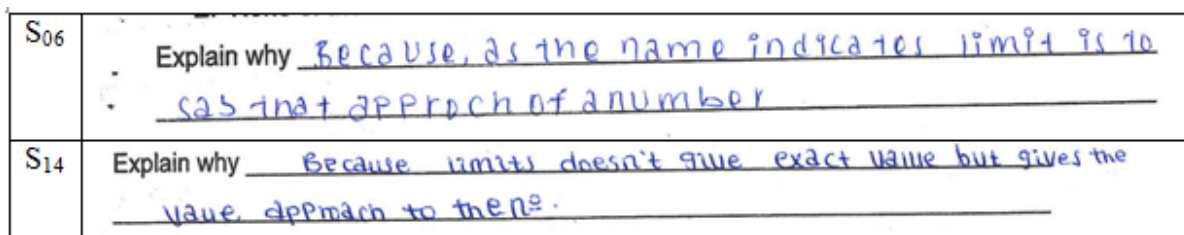 S06
Explain why Because, as the name indicates limit is to
sas that approch of anumber
S14
Explain why Because limits doesn't give exact value but gives the
vaue approach to the nº.